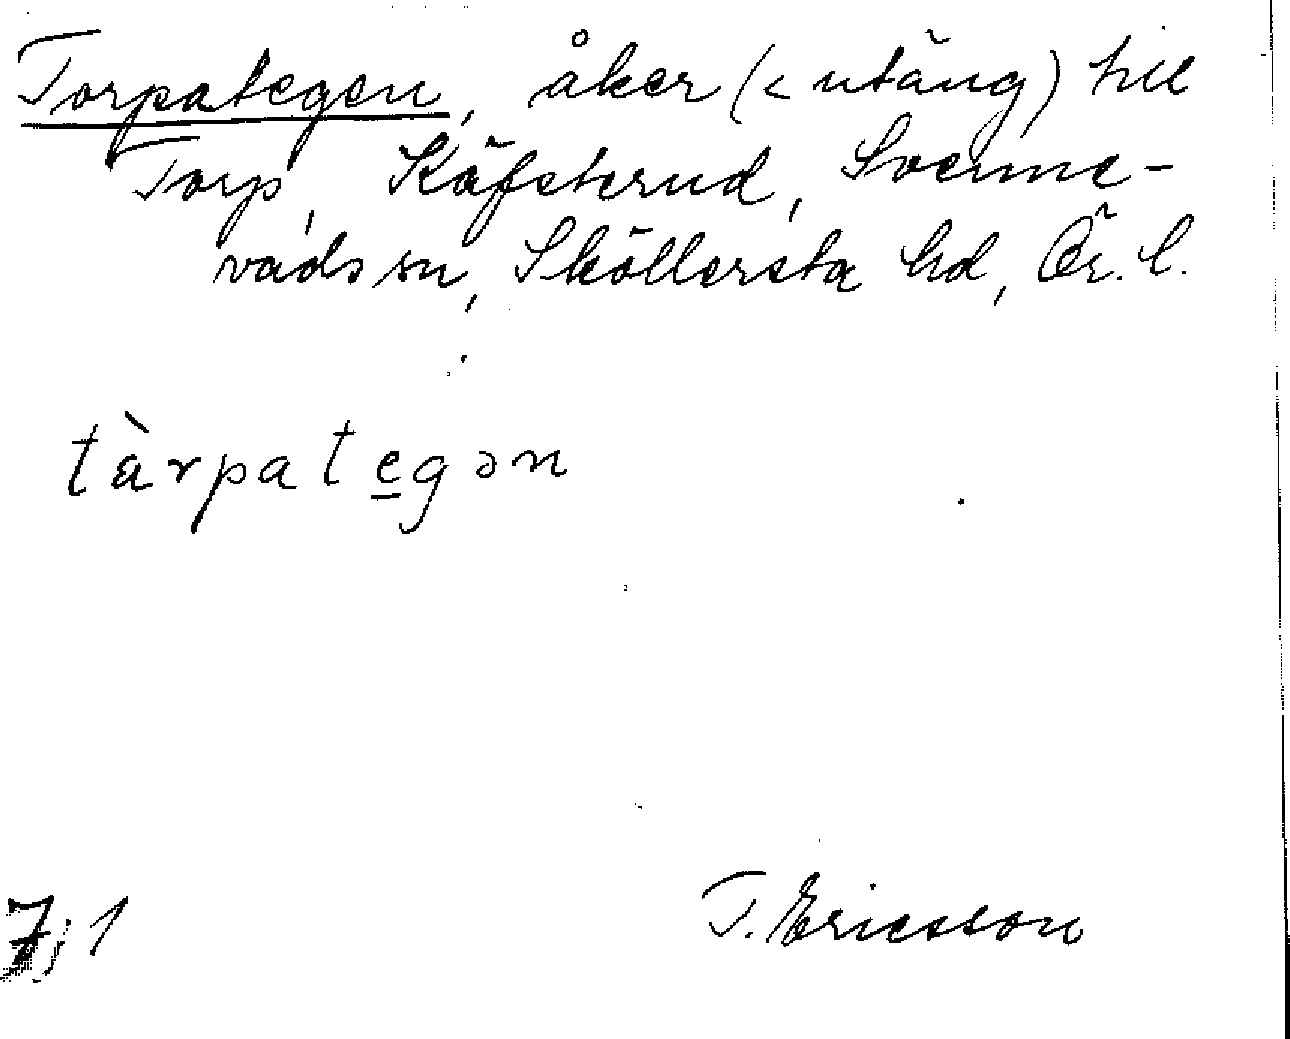 Torpategen, åker (< utäng) till
Torp, Käfsterud, Svenne-
vads sn, Sköllersta hd, Ör. l.
tàrpategən
7; 1
T. Ericsson